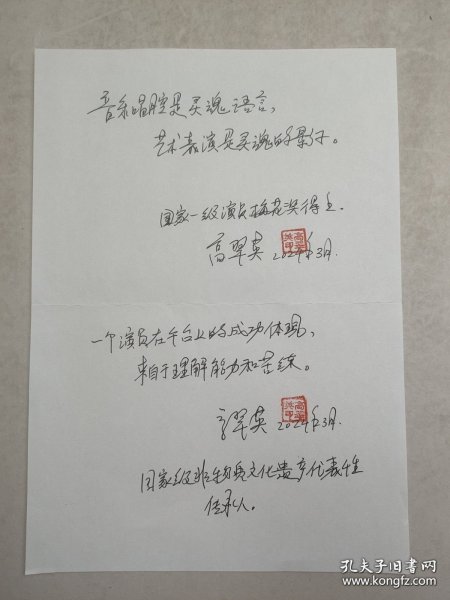 音乐唱腔是灵魂语言，
艺术表演是灵魂的
国家一级演员梅花奖得主.
高翠英 2024年3月.
一个演员在午台上的成功体现，
来自于理解能力和苦练。
高翠英 2024年3月.
国家级非物质文化遗产代表性
传承人。
孔夫子旧书网
www.kongfz.com